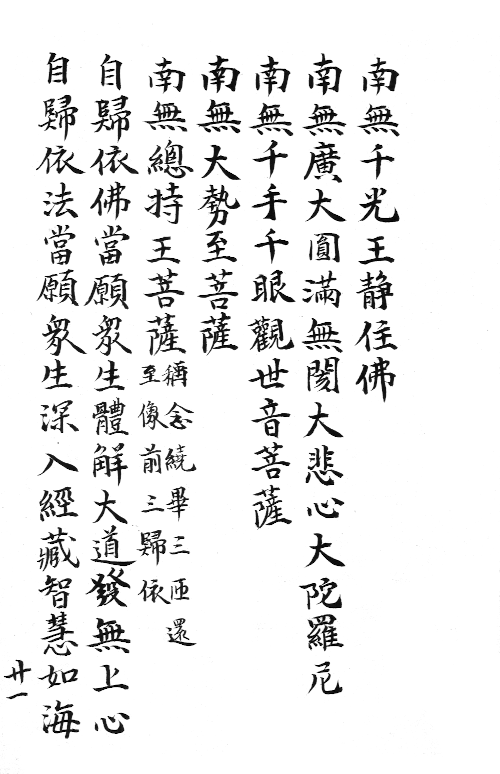 南無千光王靜住佛
南無廣大圓滿無閡大悲心大陀羅尼
南無千手千眼觀世音菩薩
南無大勢至菩薩
南無總持王菩薩
稱念繞畢三匝還
至像前三歸依
自歸依佛當願眾生體解大道發無上心
自歸依法當願眾生深入經藏智慧如海
廿一